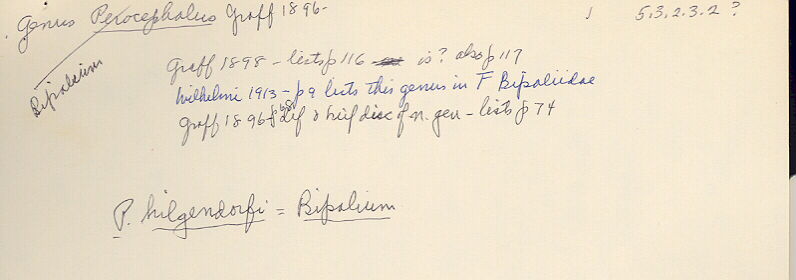 Genus Perocephalus Graff 1896- 1 5.3.2.3.2 ?
Bipalium
Graff 1898 - lists p 116 is? also p 117
Wilhelmi 1913 - p 9 lists this genus in F Bipaliidae
Graff 1896- p 68 dif & brief disc of n. gen - lists p 74
P. hilgendorfi = Bipalium